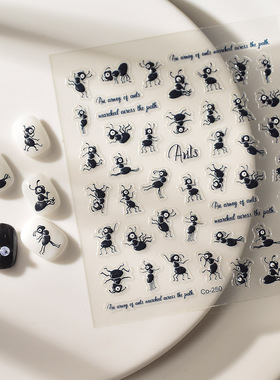 An army of ants marched across the path
An army of ants
marched across the path.
Ants
An army of ants
marched across the path.
An army of ants marched across the path.
Co-250